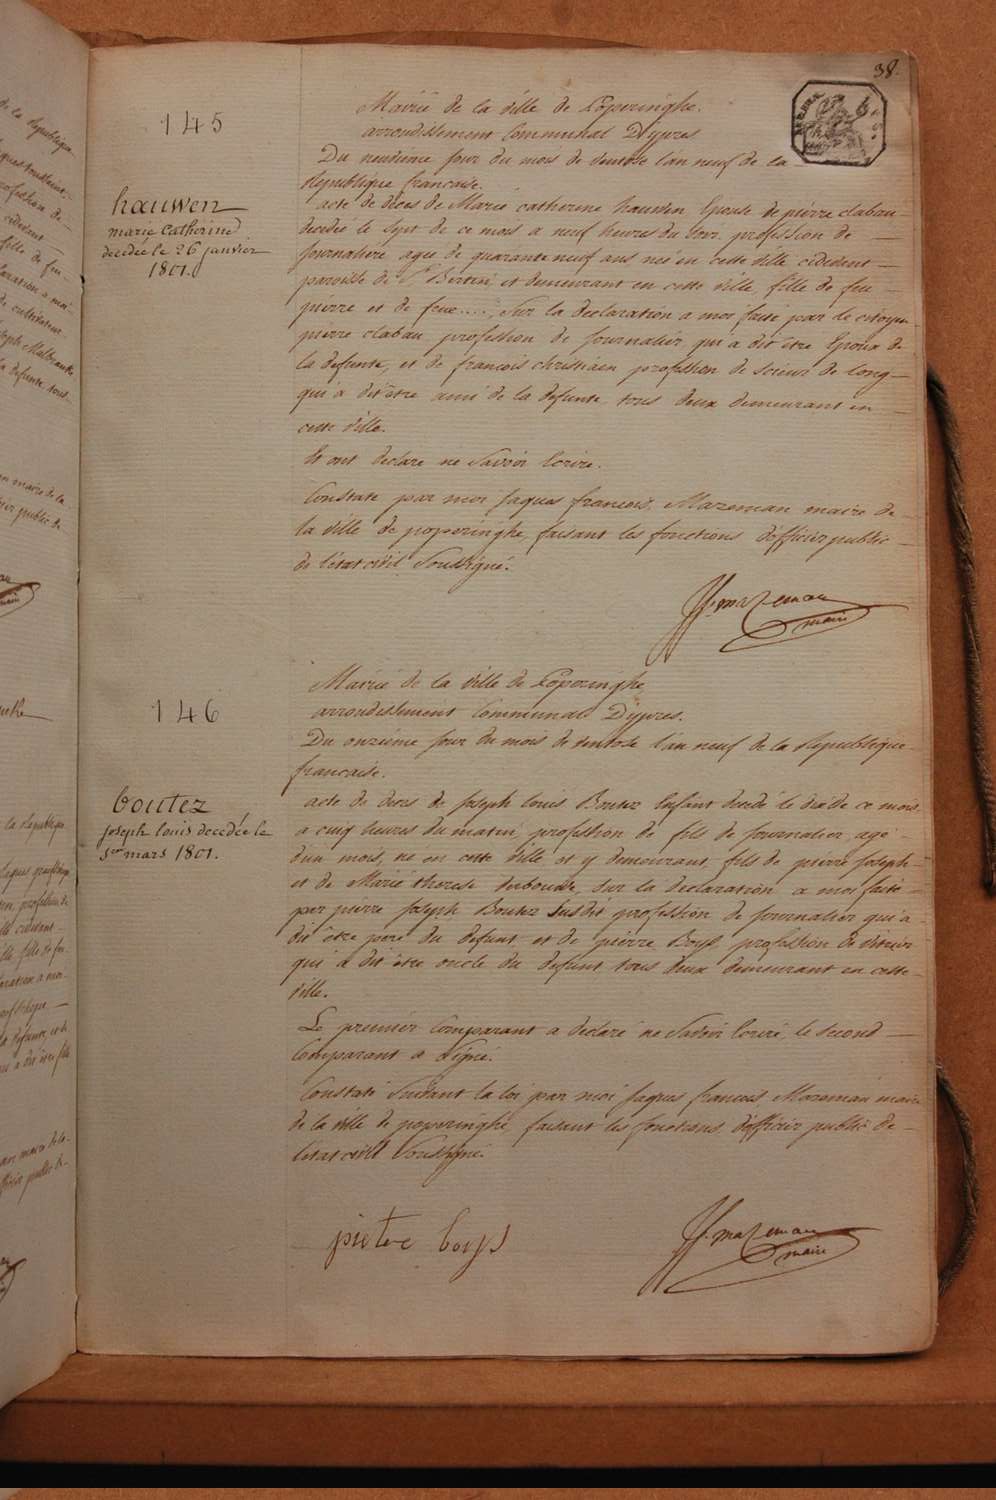 38.
145
Mairie de la ville de Poperinghe.
arrondissement Communal D'ypres
Du neuvieme jour du mois de ventose l'an neuf de la
Republique francaise.
hauwen
marie Catherine
decedée le 26 janvier
1801.
acte de déces de Marie catherine hauwen Epouse de pierre clabau
decédée le sept de ce mois a neuf heures du soir profession de
journaliere agee de quarante neuf ans née en cette ville cidevant
paroisse de St. Bertin et demeurant en cette ville, fille de feu
pierre et de feue ...., Sur la declaration a moi faite par le citoyen
pierre clabau profession de journalier qui a dit être Epoux de
la defunte, et de francois christiaen profession de scieur de long
qui a dit être ami de la defunte tous deux demeurant en
cette ville.
Et ont declare ne Savoir Ecrire.
Constaté par moi jaques francois Mazeman maire de
la ville de poperinghe, faisant les fonctions d'officier public
de l'état civil Soussigné.
JF. mazeman
maire
146
Mairie de la ville de Poperinghe
arrondissement Communal D'ypres.
Du onzieme jour du mois de ventose l'an neuf de la Republique
francaise.
boutez
joseph louis decedée le
1er mars 1801.
acte de deces de Joseph Louis Boutez Enfant decedé le dix de ce mois
a cinq heures du matin, profession de fils de journalier, agé
d'un mois, né en cette ville et y demeurant, fils de pierre joseph
et de Marie therese, Sur la declaration a moi faite
par pierre Joseph Boutez Susdit profession de journalier qui a
dit être pere du defunt et de pierre Boys profession de
qui a dit être oncle du defunt tous deux demeurant en cette
ville.
Le premier Comparant a declaré ne Savoir Ecrire, le second
Comparant a Signé.
Constaté Suivant la loi par moi jaques francois Mazeman maire
de la ville de poperinghe, faisant les fonctions d'officier public de
l'état civil Soussigné.
pieter boys
JF. mazeman
maire